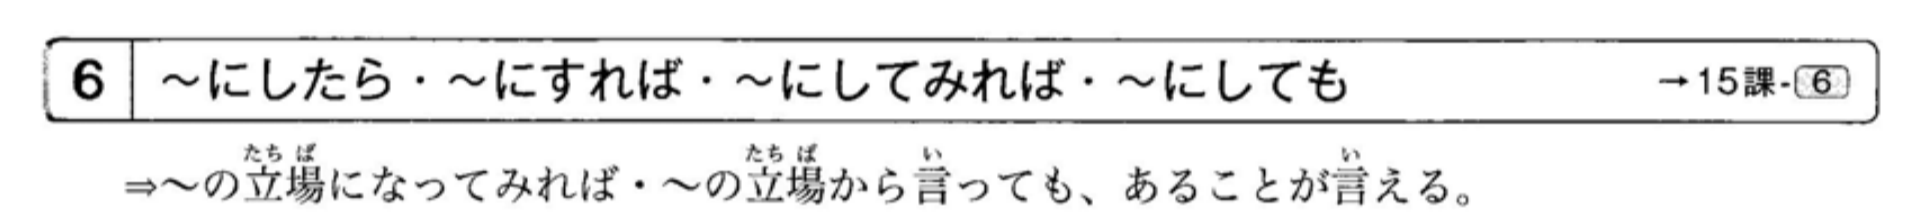 6 ～にしたら・～にすれば・～にしてみれば・～にしても →15課-6
⇒～の立場になってみれば・～の立場から言っても、あることが言える。